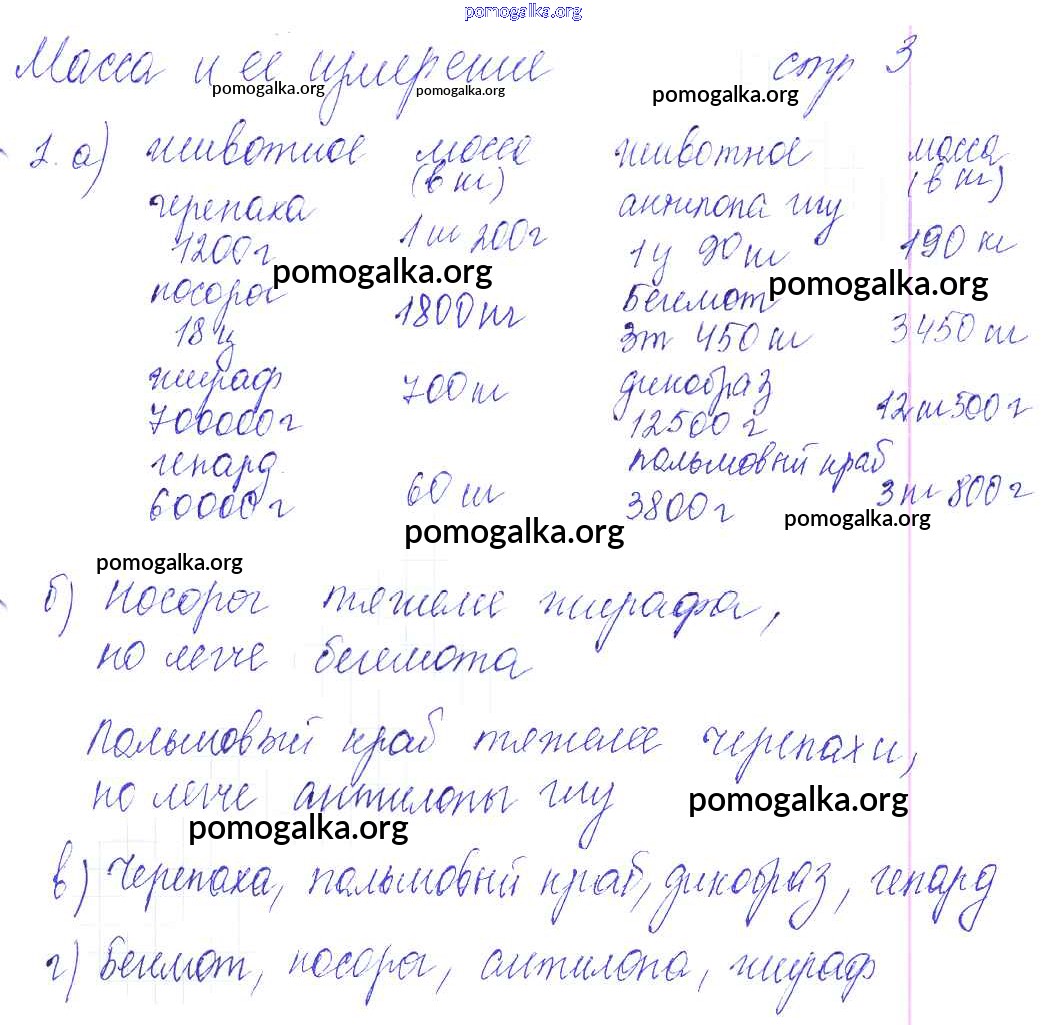 pomogalka.org
Масса и её измерение стр 3
pomogalka.org pomogalka.org pomogalka.org
1. а) животное масса животное масса
(в кг) (в кг)
черепаха антилопа гну
1200г 1 кг 200г 1ц 90 кг 190 кг
pomogalka.org pomogalka.org
носорог 1800 кг Бегемот 3450 кг
18 ц 3т 450 кг
жираф 700 кг дикобраз 12 кг 500 г
700000г 12500 г
гепард пальмовый краб
60000 г 60 кг 3800 г 3 кг 800 г
pomogalka.org pomogalka.org
pomogalka.org
б) Носорог тяжелее жирафа,
но легче бегемота
Пальмовый краб тяжелее черепахи,
но легче антилопы гну
pomogalka.org pomogalka.org
в) Черепаха, пальмовый краб, дикобраз, гепард
г) Бегемот, носорог, антилопа, жираф